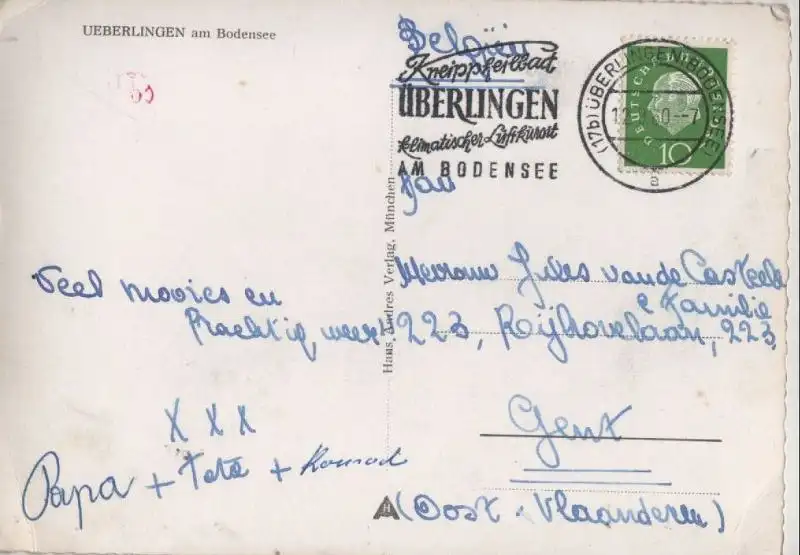 UEBERLINGEN am Bodensee
België
Kneippheilbad
ÜBERLINGEN
klimatischer Luftkurort
AM BODENSEE
(17b) ÜBERLINGEN (BODENSEE)
60.-7
a
DEUTSCHE
10
Hans Andres Verlag, München
Veel moois en
Prachtig weer!
X X X
Papa + Tetè + Konrad
Mevrouw Jules van de Casteele
e Familie
223, Rijhovelaan, 223
Gent
(Oost-Vlaanderen)